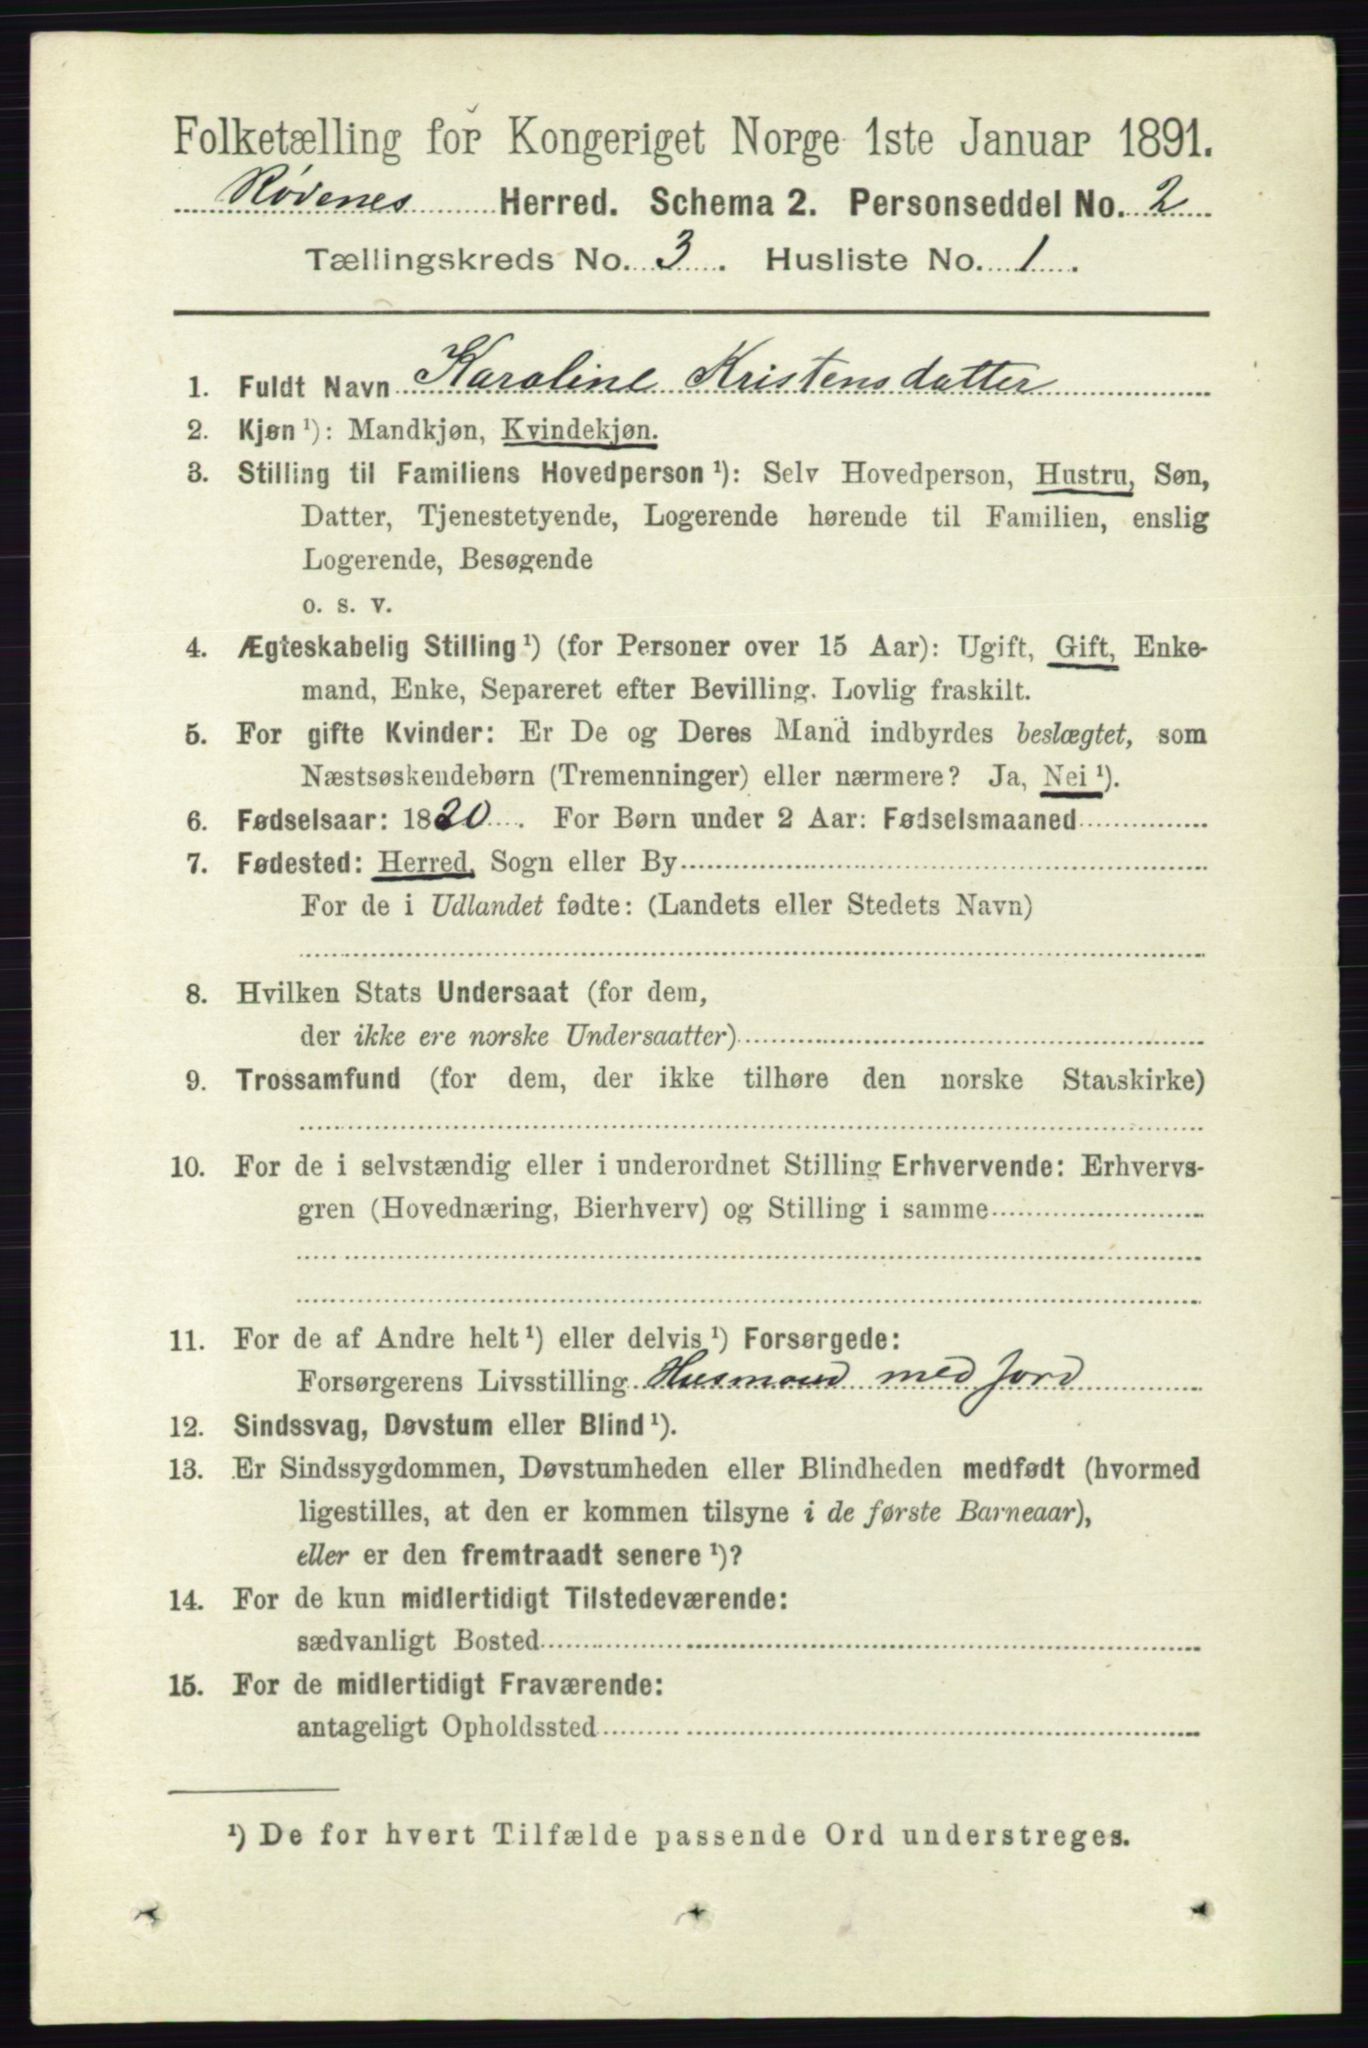 Folketælling for Kongeriget Norge 1ste Januar 1891.
Rødenes Herred. Schema 2. Personseddel No. 2
Tællingskreds No. 3. Husliste No. 1.
1. Fuldt Navn Karoline Kristensdatter
2. Kjøn ¹): Mandkjøn, Kvindekjøn.
3. Stilling til Familiens Hovedperson ¹): Selv Hovedperson, Hustru, Søn,
Datter, Tjenestetyende, Logerende hørende til Familien, enslig
Logerende, Besøgende
o. s. v.
4. Ægteskabelig Stilling ¹) (for Personer over 15 Aar): Ugift, Gift, Enke-
mand, Enke, Separeret efter Bevilling. Lovlig fraskilt.
5. For gifte Kvinder: Er De og Deres Mand indbyrdes beslægtet, som
Næstsøskendebørn (Tremenninger) eller nærmere? Ja, Nei ¹).
6. Fødselsaar: 1820. For Børn under 2 Aar: Fødselsmaaned
7. Fødested: Herred, Sogn eller By
For de i Udlandet fødte: (Landets eller Stedets Navn)
8. Hvilken Stats Undersaat (for dem,
der ikke ere norske Undersaatter)
9. Trossamfund (for dem, der ikke tilhøre den norske Statskirke)
10. For de i selvstændig eller i underordnet Stilling Erhvervende: Erhvervs-
gren (Hovednæring, Bierhverv) og Stilling i samme
11. For de af Andre helt ¹) eller delvis ¹) Forsørgede:
Forsørgerens Livsstilling Husmand med Jord
12. Sindssvag, Døvstum eller Blind ¹).
13. Er Sindssygdommen, Døvstumheden eller Blindheden medfødt (hvormed
ligestilles, at den er kommen tilsyne i de første Barneaar),
eller er den fremtraadt senere ¹)?
14. For de kun midlertidigt Tilstedeværende:
sædvanligt Bosted
15. For de midlertidigt Fraværende:
antageligt Opholdssted
¹) De for hvert Tilfælde passende Ord understreges.